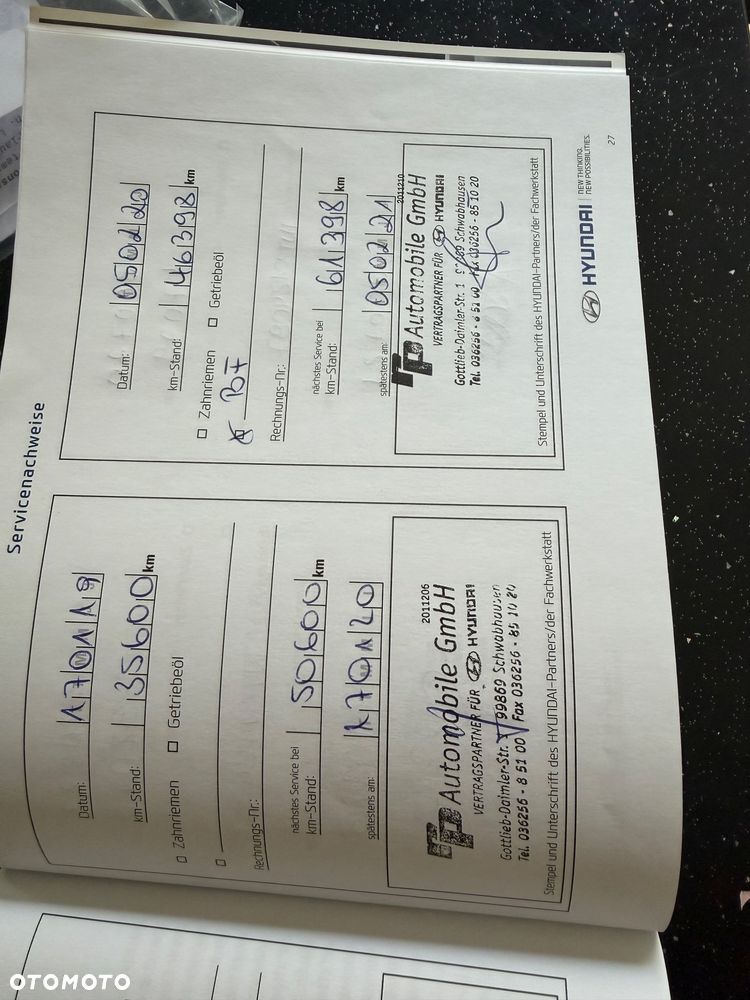 Servicenachweise
Datum: 170119
km-Stand: 35600 km
Zahnriemen Getriebeöl
Rechnungs-Nr.:
nächstes Service bei
km-Stand: 50600 km
spätestens am: 170120
2011206
Automobile GmbH
VERTRAGSPARTNER FÜR HYUNDAI
Gottlieb-Daimler-Str. 1 99869 Schwabhausen
Tel. 036256 - 8 51 00 Fax 036256 - 85 10 20
Stempel und Unterschrift des HYUNDAI-Partners/der Fachwerkstatt
Datum: 050220
km-Stand: 46398 km
Zahnriemen Getriebeöl
BF
Rechnungs-Nr.:
nächstes Service bei
km-Stand: 61398 km
spätestens am: 050221
2011210
Automobile GmbH
VERTRAGSPARTNER FÜR HYUNDAI
Gottlieb-Daimler-Str. 1 99869 Schwabhausen
Tel. 036256 - 8 51 00 036256 - 85 10 20
Stempel und Unterschrift des HYUNDAI-Partners/der Fachwerkstatt
HYUNDAI
NEW THINKING.
NEW POSSIBILITIES.
27
OTOMOTO